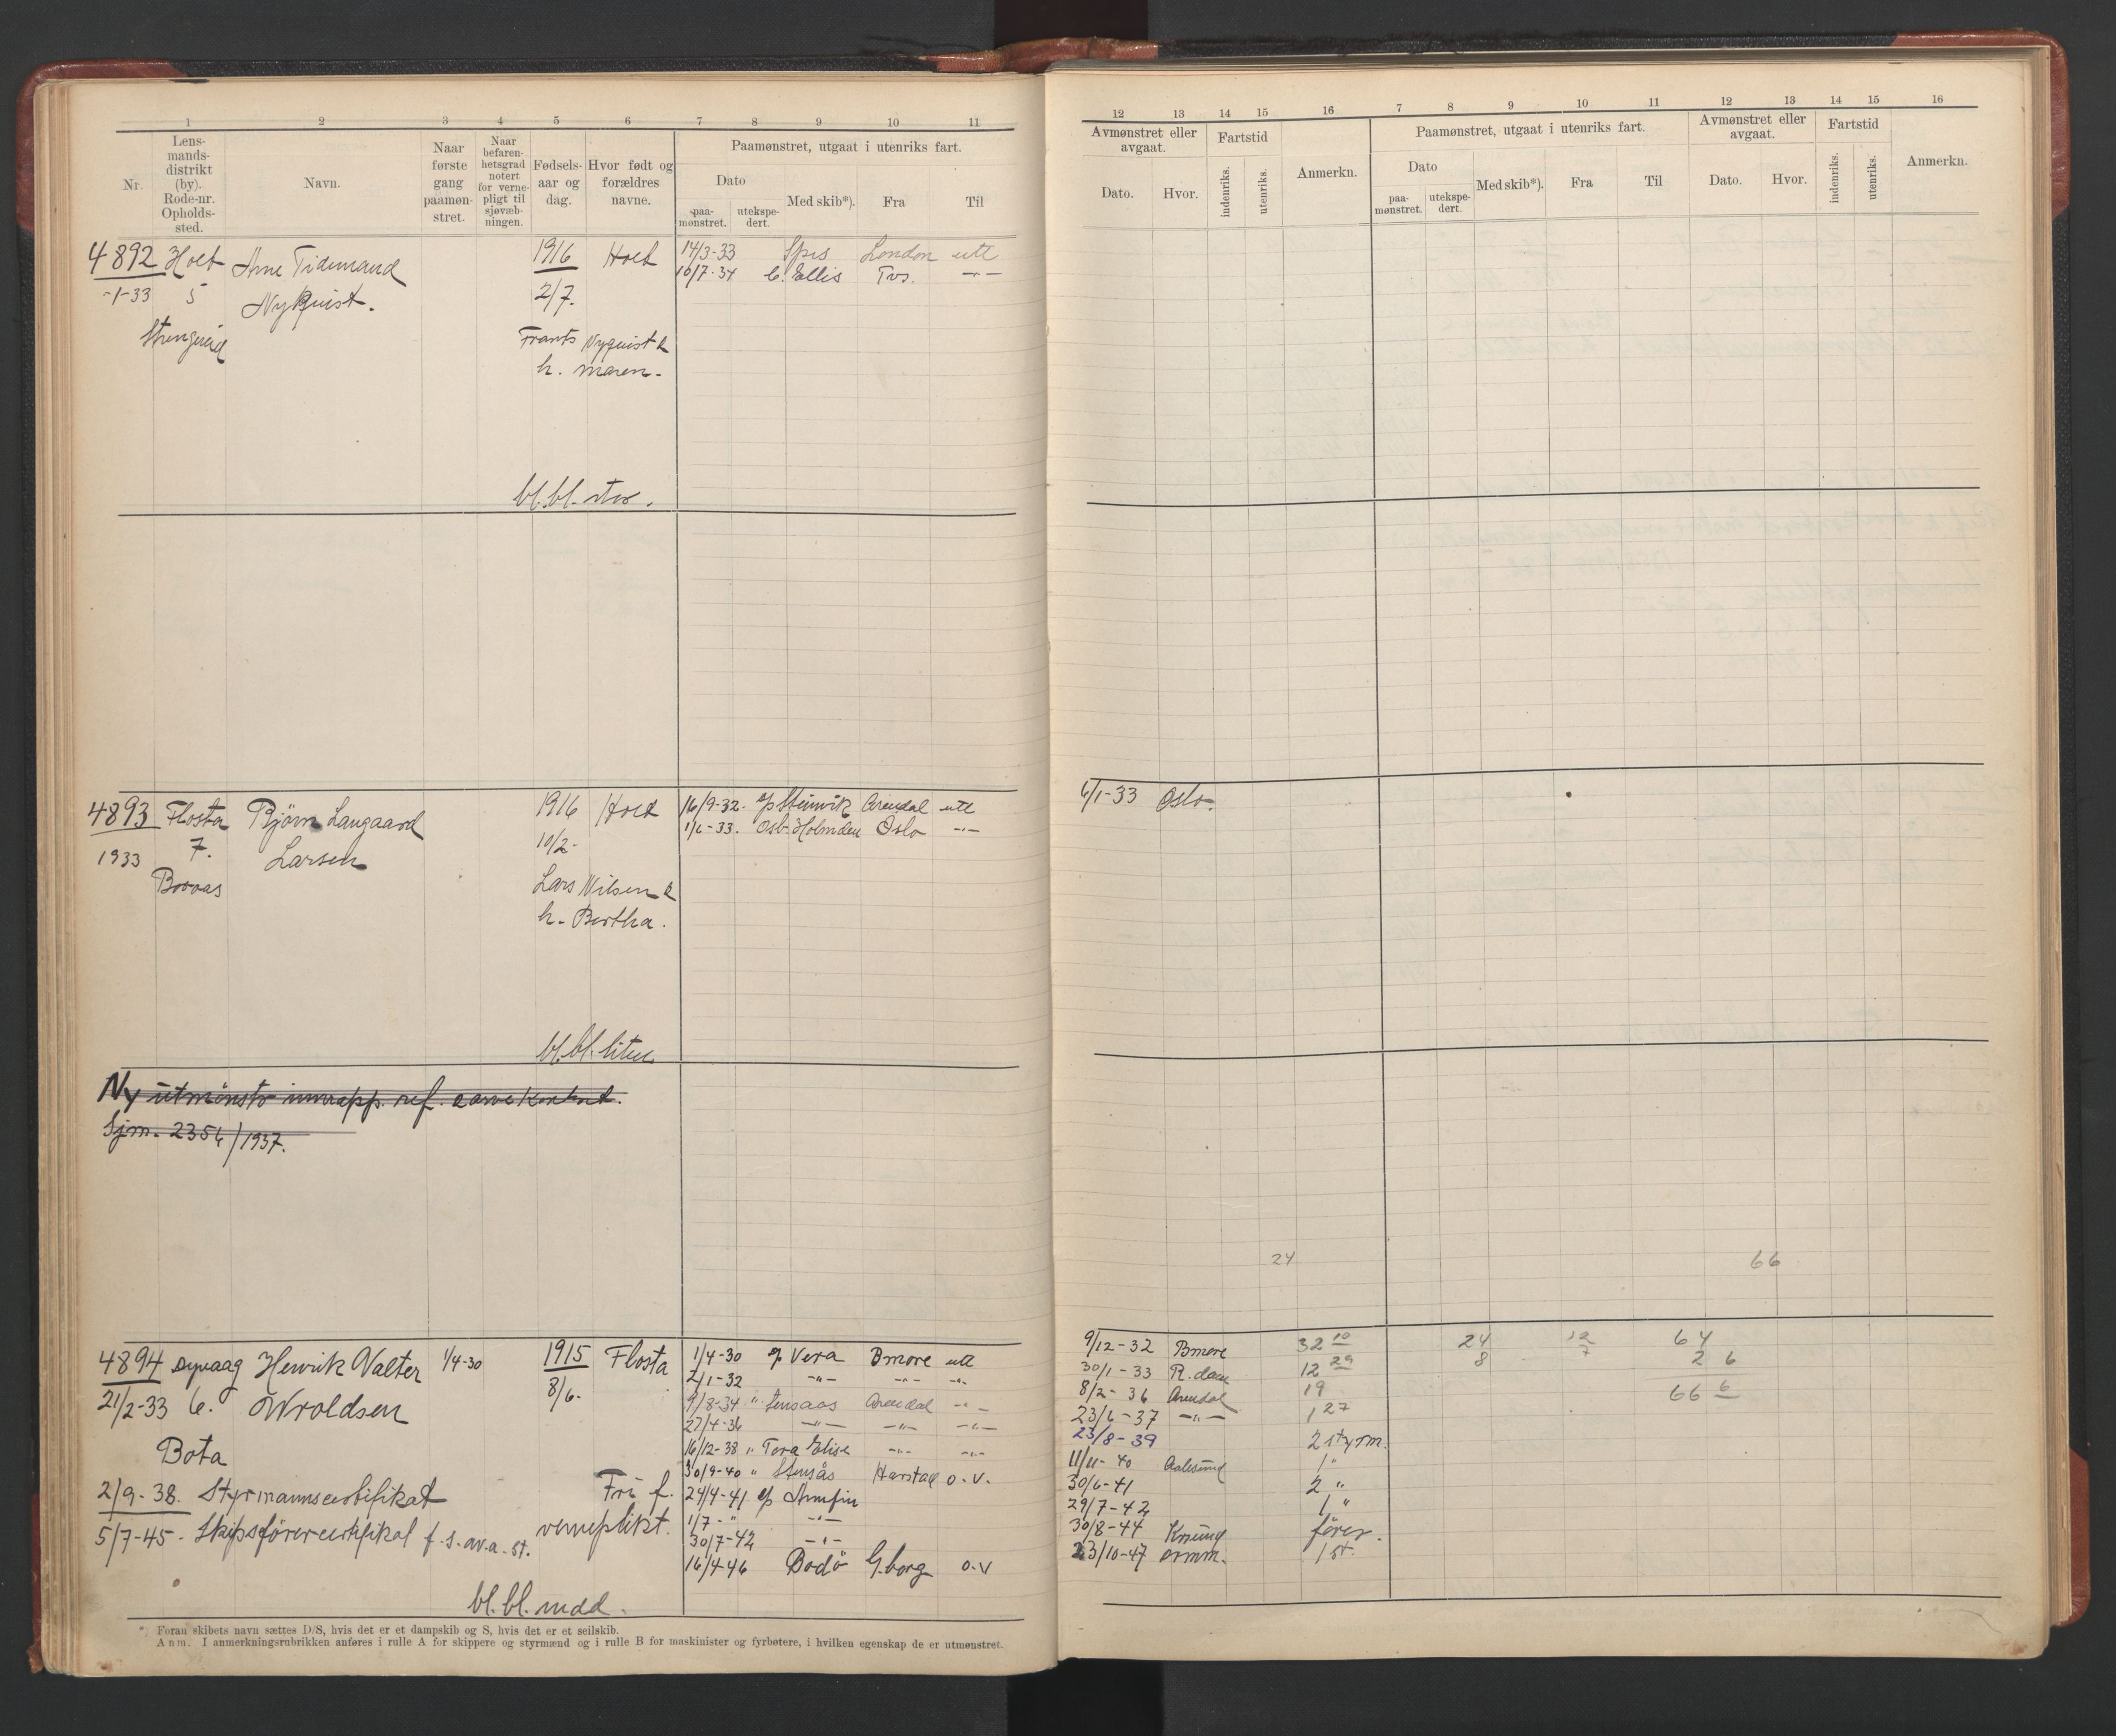 1 2 3 4 5 6 7 8 9 10 11
Nr.
Lens-
mands-
distrikt
(by).
Rode-nr.
Opholds-
sted.
Navn.
Naar
første
gang
paamøn-
stret.
Naar
befaren-
hetsgrad
notert
for verne-
pligt til
sjøvæb-
ningen.
Fødsels-
aar og
dag.
Hvor født og
forældres
navne.
Paamønstret, utgaat i utenriks fart.
Dato
paa-
mønstret.
utekspe-
dert.
Med skib*).
Fra
Til
4892 Holt Arne Tidemand 1916 Holt 14/3-33 Spes London utl
-1-33 5 Nyquist. 2/7. 10/7-34 C. Ellis Tvs. -"-
Frants Nyquist &
h. Maren.
bl. bl. stor.
4893 Flosta Bjørn Langaard 1916 Holt 16/9-32. Arendal utl
1933 7. Larsen 10/2- 1/6-33. Holmden Oslo -"-
Lars Nilsen &
h. Bertha.
bl. bl. liten
Ny utmønstr innrapp. ref.
Sjm. 2354/1937.
4894 Dypvaag Henrik Valter 1/4-30 1915 Flosta 1/4-30 Vera Bmore utl
21/2-33 6. Wroldsen 8/6. 2/1-32 -"- -"- -"-
9/8-34 " Arendal -"-
Bota 27/4-36 -"- -"- -"-
16/12-38 " Tora Elise -"- -"-
2/9-38. Styrmannscertifikat Fri f. 30/9-40 " Stensås Harstad o.v.
24/4-41
5/7-45- Skipsførercertifikat f.s.av.a.st. verneplikt. 1/7-" -"-
30/7-42 -"-
16/4-46 Bodö G.borg o.v
bl. bl. mdd.
*) Foran skibets navn sættes D/S, hvis det er et dampskib og S, hvis det er et seilskib.
Anm. I anmerkningsrubrikken anføres i rulle A for skippere og styrmænd og i rulle B for maskinister og fyrbøtere, i hvilken egenskap de er utmønstret.
12 13 14 15 16 7 8 9 10 11 12 13 14 15 16
Avmønstret eller
avgaat.
Dato.
Hvor.
Fartstid
indenriks.
utenriks.
Anmerkn.
Paamønstret, utgaat i utenriks fart.
Dato
paa-
mønstret.
utekspe-
dert.
Med skib*).
Fra
Til
Avmønstret eller
avgaat.
Dato.
Hvor.
Fartstid
indenriks.
utenriks.
Anmerkn.
6/1-33 Oslo.
24 66
9/12-32 Bmore 32 10 24 64
30/1-33 R.dam 12 29 8 2 6
8/2-36 Arendal 19 66 6
23/6-37 -"- 1 27
23/8-39 2 styrm.
11/11-40 Aalesund 1 "
30/6-41 2 "
29/7-42 1 "
30/8-44 fører.
23/10-47 1 st.